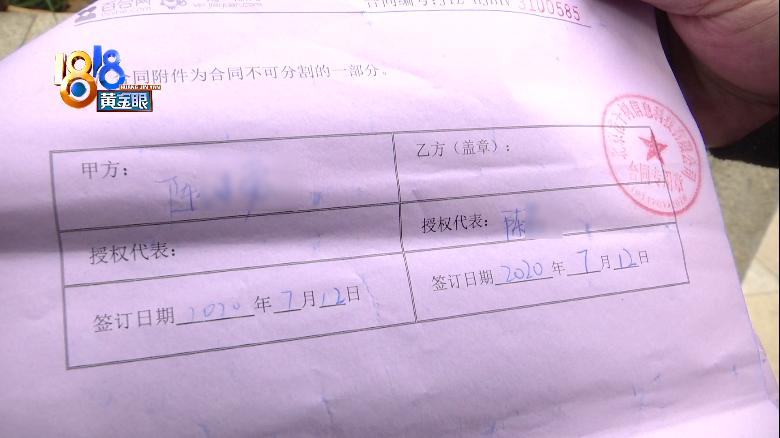 百合网
合同编号:
3100585
1818
HUANGJINYAN
黄金眼
合同附件为合同不可分割的一部分。
甲方:
陈
乙方(盖章):
合同专用章
授权代表:
授权代表: 陈
签订日期 2020 年 7 月 12 日
签订日期 2020 年 7 月 12 日